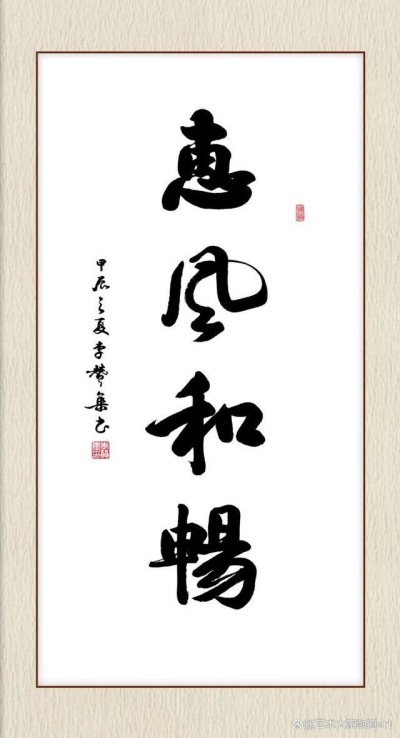 惠風和暢
甲辰之夏李赞集书